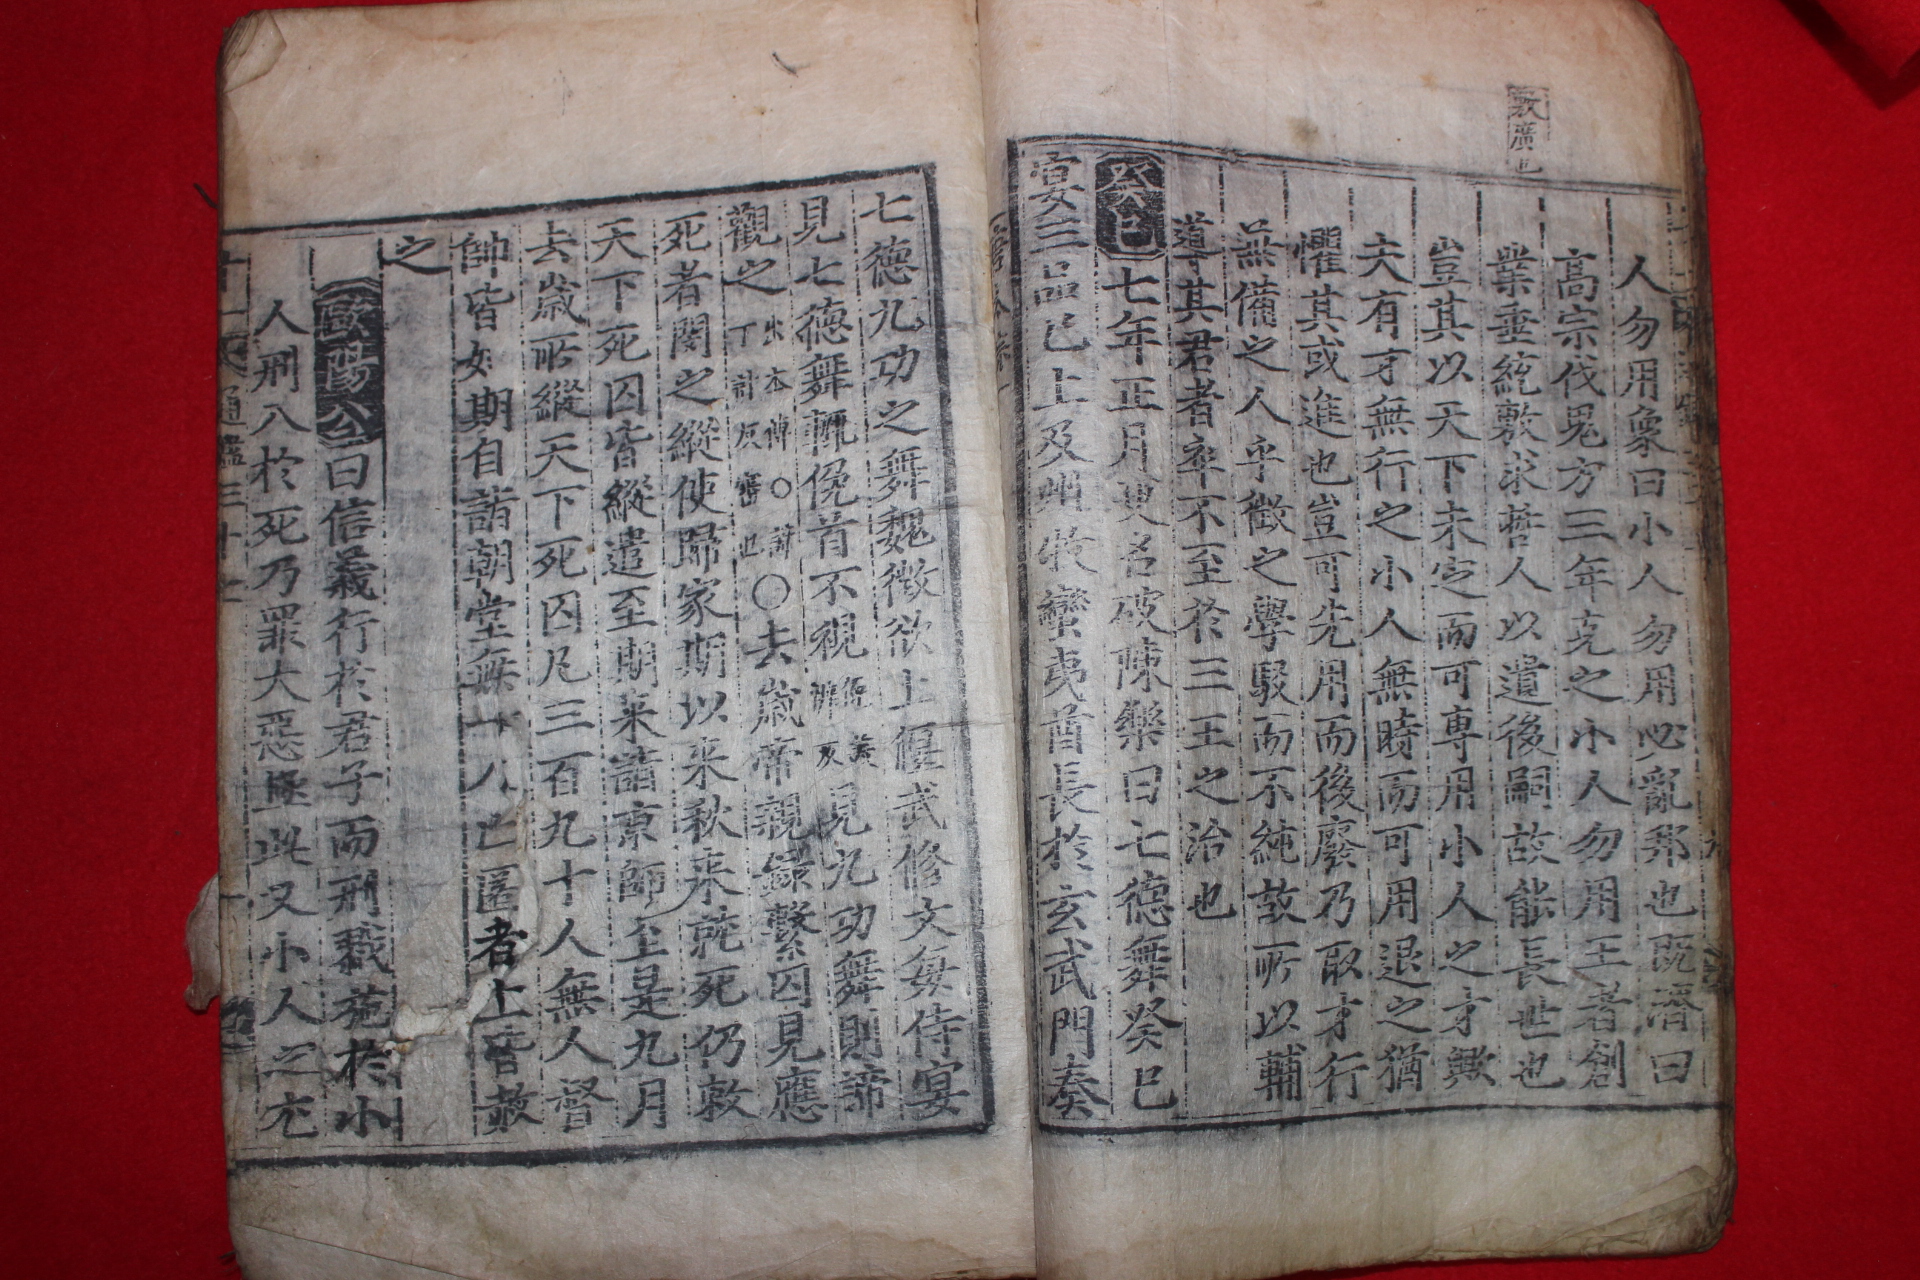 敷廣也
人勿用象曰小人勿用必亂邦也旣濟曰
高宗伐鬼方三年克之小人勿用王者創
業垂統敷求哲人以遺後嗣故能長世也
豈其以天下未定而可專用小人之才歟
夫有才無行之小人無時而可用退之猶
懼其或進也豈可先用而後廢乃取才行
無備之人乎徵之學駁而不純故所以輔
導其君者卒不至於三王之治也
癸巳七年正月更名破陳樂曰七德舞癸巳
宴三品已上及州牧蠻夷酋長於玄武門奏
七德九功之舞魏徵欲上偃武修文每侍宴
見七德舞輒俛首不視見九功舞則諦
觀之出本傳○諦丁計反審也○去歲帝親錄繫囚見應
死者閔之縱使歸家期以来秋来就死仍敕
天下死囚皆縱遣至期来詣京師至是九月
去歲所縱天下死囚凡三百九十人無人督
帥皆如期自詣朝堂無一人亡匿者上皆赦
之
歐陽公曰信義行於君子而刑戮施於小
人刑入於死乃罪大惡極此又小人之尤
通鑑三十七